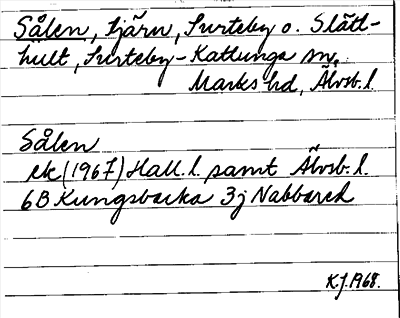 Sålen, tjärn, Surteby o. Slätt-
hult, Surteby-Kattunga sn,
Marks hd, Älvsb. l.
Sålen
ek (1967) Hall. l. samt Älvsb. l.
6B Kungsbacka 3j Nabbared
K.J. 1968.